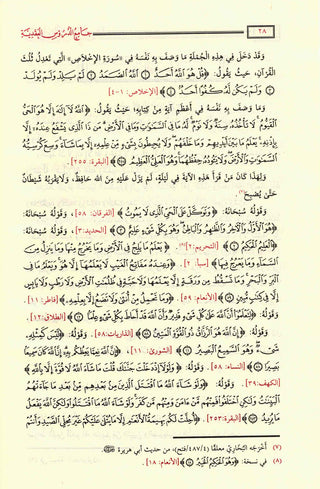 ٢٨ جامع الدروس العقدية
وَقَدْ دَخَلَ فِي هَذِهِ الْجُمْلَةِ مَا وَصَفَ بِهِ نَفْسَهُ فِي «سُورَةِ الْإِخْلَاصِ» الَّتِي تَعْدِلُ ثُلُثَ
الْقُرْآنِ، حَيْثُ يَقُولُ: ﴿قُلْ هُوَ اللَّهُ أَحَدٌ ۝١ اللَّهُ الصَّمَدُ ۝٢ لَمْ يَلِدْ وَلَمْ يُولَدْ
۝٣ وَلَمْ يَكُن لَّهُ كُفُوًا أَحَدٌ ۝٤﴾ [الإخلاص: ١-٤]
وَمَا وَصَفَ بِهِ نَفْسَهُ فِي أَعْظَمِ آيَةٍ مِنْ كِتَابِهِ؛ حَيْثُ يَقُولُ: ﴿اللَّهُ لَا إِلَهَ إِلَّا هُوَ الْحَيُّ
الْقَيُّومُ لَا تَأْخُذُهُ سِنَةٌ وَلَا نَوْمٌ لَّهُ مَا فِي السَّمَاوَاتِ وَمَا فِي الْأَرْضِ مَن ذَا الَّذِي يَشْفَعُ عِندَهُ إِلَّا
بِإِذْنِهِ يَعْلَمُ مَا بَيْنَ أَيْدِيهِمْ وَمَا خَلْفَهُمْ وَلَا يُحِيطُونَ بِشَيْءٍ مِّنْ عِلْمِهِ إِلَّا بِمَا شَاءَ وَسِعَ كُرْسِيُّهُ
السَّمَاوَاتِ وَالْأَرْضَ وَلَا يَئُودُهُ حِفْظُهُمَا وَهُوَ الْعَلِيُّ الْعَظِيمُ ۝٢٥٥﴾ [البقرة: ٢٥٥]
وَلِهَذَا كَانَ مَنْ قَرَأَ هَذِهِ الْآيَةَ فِي لَيْلَةٍ، لَمْ يَزَلْ عَلَيْهِ مِنَ اللهِ حَافِظٌ، وَلَا يَقْرَبُهُ شَيْطَانٌ
حَتَّى يُصْبِحَ(٧)
وَقَوْلُهُ سُبْحَانَهُ: ﴿وَتَوَكَّلْ عَلَى الْحَيِّ الَّذِي لَا يَمُوتُ﴾ [الفرقان: ٥٨]، وَقَوْلُهُ سُبْحَانَهُ:
﴿هُوَ الْأَوَّلُ وَالْآخِرُ وَالظَّاهِرُ وَالْبَاطِنُ وَهُوَ بِكُلِّ شَيْءٍ عَلِيمٌ ۝٣﴾ [الحديد: ٣]، وَقَوْلُهُ سُبْحَانَهُ:
﴿الْعَلِيمُ الْحَكِيمُ ۝٢﴾ [التحريم: ٢](٨)، ﴿يَعْلَمُ مَا يَلِجُ فِي الْأَرْضِ وَمَا يَخْرُجُ مِنْهَا وَمَا يَنزِلُ مِنَ
السَّمَاءِ وَمَا يَعْرُجُ فِيهَا﴾ [سبأ: ٢]، ﴿وَعِندَهُ مَفَاتِحُ الْغَيْبِ لَا يَعْلَمُهَا إِلَّا هُوَ وَيَعْلَمُ مَا فِي
الْبَرِّ وَالْبَحْرِ وَمَا تَسْقُطُ مِن وَرَقَةٍ إِلَّا يَعْلَمُهَا وَلَا حَبَّةٍ فِي ظُلُمَاتِ الْأَرْضِ وَلَا رَطْبٍ وَلَا يَابِسٍ
إِلَّا فِي كِتَابٍ مُّبِينٍ ۝٥٩﴾ [الأنعام: ٥٩]، ﴿وَمَا تَحْمِلُ مِنْ أُنثَى وَلَا تَضَعُ إِلَّا بِعِلْمِهِ﴾ [فاطر: ١١]،
﴿لِتَعْلَمُوا أَنَّ اللَّهَ عَلَى كُلِّ شَيْءٍ قَدِيرٌ وَأَنَّ اللَّهَ قَدْ أَحَاطَ بِكُلِّ شَيْءٍ عِلْمًا ۝١٢﴾ [الطلاق: ١٢]
وَقَوْلُهُ: ﴿إِنَّ اللَّهَ هُوَ الرَّزَّاقُ ذُو الْقُوَّةِ الْمَتِينُ ۝٥٨﴾ [الذاريات: ٥٨]. وَقَوْلُهُ: ﴿لَيْسَ كَمِثْلِهِ
شَيْءٌ وَهُوَ السَّمِيعُ الْبَصِيرُ ۝١١﴾ [الشورى: ١١]. ﴿إِنَّ اللَّهَ نِعِمَّا يَعِظُكُم بِهِ إِنَّ اللَّهَ كَانَ سَمِيعًا
بَصِيرًا ۝٥٨﴾ [النساء: ٥٨]. وَقَوْلُهُ: ﴿وَلَوْلَا إِذْ دَخَلْتَ جَنَّتَكَ قُلْتَ مَا شَاءَ اللَّهُ لَا قُوَّةَ إِلَّا بِاللَّهِ﴾
[الكهف: ٣٩]. وَقَوْلُهُ: ﴿وَلَوْ شَاءَ اللَّهُ مَا اقْتَتَلَ الَّذِينَ مِنْ بَعْدِهِم مِّنْ بَعْدِ مَا جَاءَتْهُمُ
الْبَيِّنَاتُ وَلَكِنِ اخْتَلَفُوا فَمِنْهُم مَّنْ آمَنَ وَمِنْهُم مَّن كَفَرَ وَلَوْ شَاءَ اللَّهُ مَا اقْتَتَلُوا وَلَكِنَّ اللَّهَ يَفْعَلُ
مَا يُرِيدُ ۝٢٥٣﴾ [البقرة: ٢٥٣]. ﴿أُحِلَّتْ لَكُم بَهِيمَةُ الْأَنْعَامِ إِلَّا مَا يُتْلَى عَلَيْكُمْ غَيْرَ مُحِلِّي الصَّيْدِ وَأَنتُمْ
(٧) أخرجه البخاري معلقا (٤٨٧/٤ فتح)، من حديث أبي هريرة
(٨) في نسخة: ﴿وَهُوَ الْحَكِيمُ الْخَبِيرُ ۝١٨﴾ [الأنعام: ١٨].